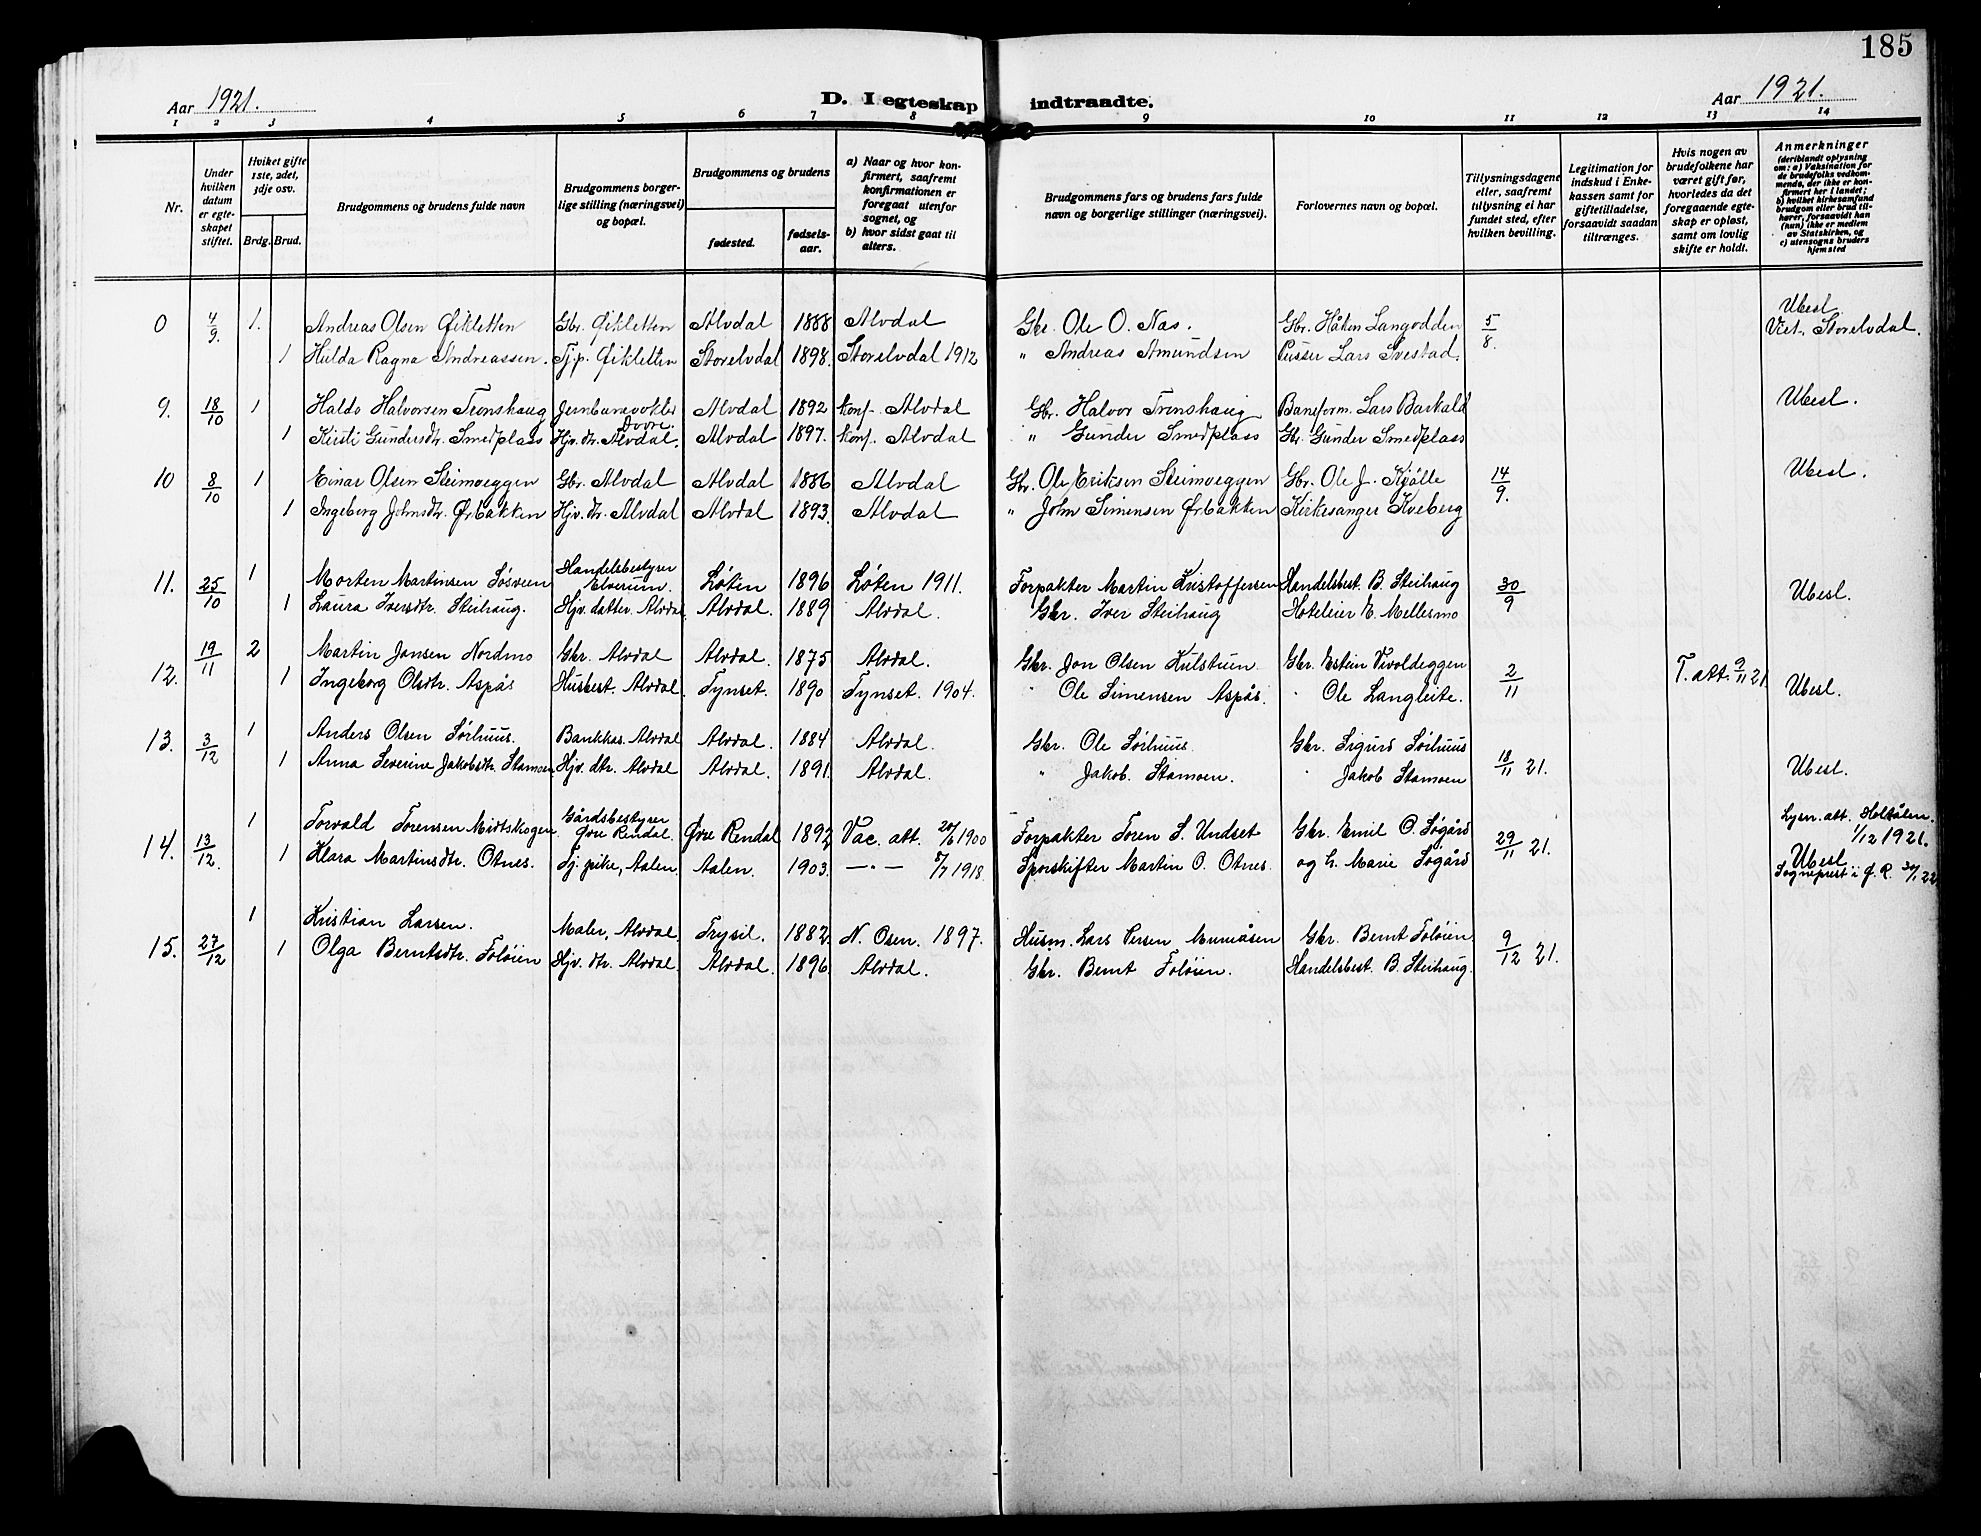 185
Aar 1921.
D. I egteskap indtraadte.
Aar 1921.
1 2 3 4 5 6 7 8 9 10 11 12 13 14
Nr.
Under hvilken datum er egteskapet stiftet.
Hviket gifte 1ste, 2det, 3dje osv.
Brdg. Brud.
Brudgommens og brudens fulde navn
Brudgommens borgerlige stilling (næringsvei) og bopæl.
Brudgommens og brudens
fødested.
fødselsaar.
a) Naar og hvor konfirmert, saafremt konfirmationen er foregaat utenfor sognet, og
b) hvor sidst gaat til alters.
Brudgommens fars og brudens fars fulde navn og borgerlige stillinger (næringsvei).
Forlovernes navn og bopæl.
Tillysningsdagene eller, saafremt tillysning ei har fundet sted, efter hvilken bevilling.
Legitimation for indskud i Enkekassen samt for giftetilladelse, forsaavidt saadan tiltrænges.
Hvis nogen av brudefolkene har været gift før, hvorledes da det foregaaende egteskap er opløst, samt om lovlig skifte er holdt.
Anmerkninger
(deriblandt oplysning om: a) Vaksination for de brudefolks vedkommende, der ikke er konfirmert her i landet; b) hvilket kirkesamfund brudgom eller brud tilhører, forsaavidt han (hun) ikke er medlem av Statskirken, og c) utensogns bruders hjemsted
0 4/9 1. Andreas Olsen Øikletten Gbr. Øikletten Alvdal 1888 Alvdal Gbr. Ole O. Nas. Gbr. Håken Langodden 5/8. Ubesl. Viet. Storelvdal.
1 Hulda Ragna Andreassen. Tjp. Øikletten Storelvdal 1898. Storelvdal 1912 " Andreas Amundsen Pusser Lars Svestad.
9. 18/10 1 Haldo Halvorsen Tronshaug Jernbanevokter Dovre. Alvdal 1892 konf. Alvdal Gbr. Halvor Tronshaug Baneform. Lars Barkald Ubesl.
1 Kirsti Gundersdtr. Smedplass Hjv. dtr. Alvdal. Alvdal 1897. konf. Alvdal " Gunder Smedplass Gbr. Gunder Smedplass
10 8/10 1 Einar Olsen Steimoeggen Gbr. Alvdal Alvdal 1886 Alvdal Gbr. Ole Eriksen Steimoeggen Gbr. Ole J. Kjølle 14/9. Ubesl.
1 Ingeborg Johnsdtr. Ørbakken Hjv. dtr. Alvdal Alvdal 1893. Alvdal " John Simensen Ørbakken Kirkesanger Kveberg
11. 25/10 1 Morten Martinsen Søsveen Handelsbestyrer Elverum. Løten 1896 Løten 1911. Forpakter Martin Kristoffersen Handelsbest. B. Steihaug 30/9 Ubesl.
1 Laura Iversdtr. Steihaug. Hjv. datter. Alvdal. Alvdal. 1889 Alvdal. Gbr. Iver Steihaug Hoteleier E. Mellesmo
12. 19/11 2 Martin Jonsen Nordmo Gbr. Alvdal Alvdal. 1875 Alvdal. Gbr. Jon Olsen Kulstuen. Gbr. Estein Vivoldeggen 2/11 T. att. 9/11 21. Ubesl.
1 Ingeborg Olsdtr. Aspås Husbest. Alvdal. Tynset. 1890 Tynset. 1904. " Ole Simensen Aspås. " Ole Langleite.
13. 3/12 1 Anders Olsen Sørhuus. Bankkas. Alvdal Alvdal. 1884 Alvdal. Gbr. Ole Sørhuus. Gbr. Sigurd Sørhuus 18/11 21. Ubesl.
1 Anna Severine Jakobsdtr. Stamoen Hjv. dtr. Alvdal Alvdal. 1891. Alvdal. " Jakob. Stamoen. " Jakob Stamoen
14. 13/12. 1 Torvald Torensen Midtskogen Gårdsbestyrer Øvre Rendal. Øvre Rendal 1892 Vac. att. 20/6 1900 Forpakter Toren S. Undset Gbr. Emil O. Søgård 29/11 21. Lysn. att. Holtålen. 1/12 1921. Ubesl
1 Klara Martinsdtr. Otnes. Tj. pike, Aalen. Aalen. 1903. — " — 8/7 1918. Sporskifter Martin O. Otnes. og h. Marie Søgård Sogneprest i Ø. R. 30/1 22
15. 27/12 1 Kristian Larsen. Maler, Alvdal. Trysil. 1882. N. Osen. 1897. Husm. Lars Persen Mumåsen Gbr. Bernt Toløien 9/12 21.
1 Olga Berntsdtr. Toløien Hjv. dtr. Alvdal. Alvdal. 1896. Alvdal. Gbr. Bernt Toløien. Handelsbest. B. Steihaug.